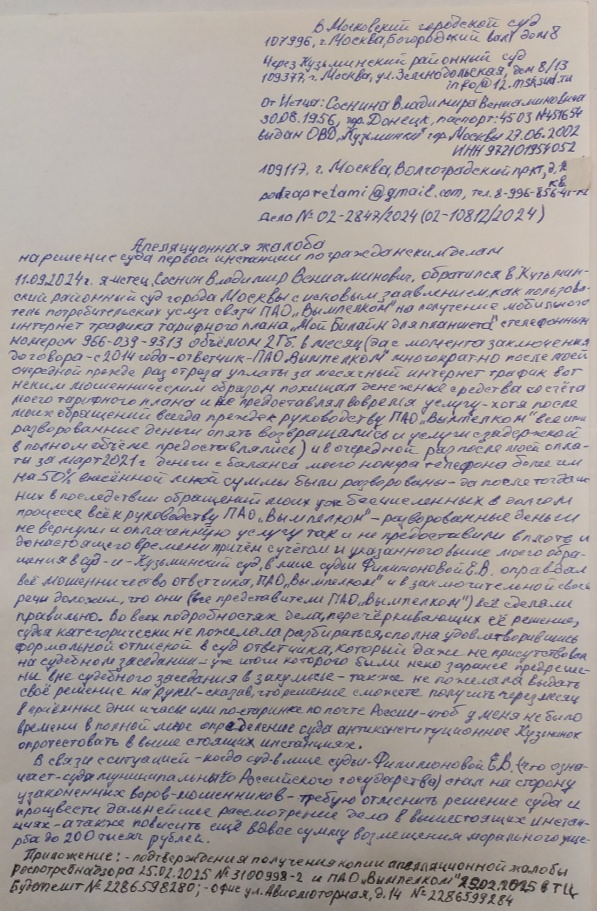 В Московский городской суд
107996, г. Москва, Богородский вал, дом 8
Через Кузьминский районный суд
109377, г. Москва, ул. Зеленодольская, дом 8/13
info@12.msksud.ru
От Истца: Соснина Владимира Вениаминовича
30.08.1956, гор. Донецк, паспорт: 4503 №
выдан ОВД „Кузьминки" гор. Москвы 27.06.2002
ИНН 972101954052
109117, г. Москва, Волгоградский пр-кт, д.
кв.
podzapretami@gmail.com, тел. 8-996-856-
Дело № 02-2847/2024 (02-10812/2024)
Апеляционная жалоба
на решение суда первой инстанции по гражданским делам
11.09.2024 г. я-истец, Соснин Владимир Вениаминович, обратился в Кузьмин-
ский районный суд города Москвы с исковым заявлением, как пользова-
тель потребительских услуг связи ПАО „Вымпелком" на получение мобильного
интернет трафика тарифного плана „Мой Билайн для планшета" с телефонным
номером 966-039-9313 объёмом 2 Гб. в месяц (да с момента заключения
договора - с 2014 года - ответчик - ПАО „Вымпелком" многократно после моей
очередной прежде раз от раза уплаты за месячный интернет трафик вот
неким мошенническим образом похищал денежные средства со счёта
моего тарифного плана и не предоставлял вовремя услугу - хотя после
моих обращений всегда прежде к руководству ПАО „Вымпелком" все ими
разворованные деньги опять возвращались и услуги с задержкой
в полном объёме предоставлялись) и в очередной раз после моей опла-
ты за март 2021 г. деньги с баланса моего номера телефона более чем
на 50% внесённой мной суммы были разворованы - да после тогда
них в последствии обращений моих уж бесчисленных в долгом
процессе всё к руководству ПАО „Вымпелком" - разворованные деньги
не вернули и оплаченную услугу так и не предоставили вплоть и
до настоящего времени причём с учётом и указанного выше моего обра-
щения в суд - и - Кузьминский суд, в лице судьи Филимоновой Е.В. оправдал
всё мошенничество ответчика, ПАО „Вымпелком" и в заключительной своей
речи доложил, что они (все представители ПАО „Вымпелком") всё сделали
правильно. Во всех подробностях дела, перечёркивающих её решение,
судья категорически не пожелала разбираться, сполна удовлетворившись
формальной отпиской в суд ответчика, который даже не присутствовал
на судебном заседании - уж итоги которого были неко заранее предреше-
ны вне судебного заседания в закулисье - также не пожелала выдать
своё решение на руки - сказав, что решение сможете получить через месяц
в приёмные дни и часы или по старинке по почте России - чтоб у меня не было
времени в полной мере определение суда антиконституционное Кузьминок
опротестовать в выше стоящих инстанциях.
В связи с ситуацией - когда суд в лице судьи - Филимоновой Е.В. (что озна-
чает - суда муниципального Российского государства) стал на сторону
узаконенных воров-мошенников - требую отменить решение суда и
прошвести дальнейшее рассмотрение дела в вышестоящих инстан-
циях - а также повысить ещё вдвое сумму возмещения морального уще-
рба до 200 тысяч рублей.
Приложение: - подтверждения получения копии апеляционной жалобы
Роспотребнадзора 25.02.2025 № 3100998-2 и ПАО „Вымпелком" 25.02.2025 в ТЦ
Будапешт № 2286598280; - офис ул. Авиамоторная, д. 14 № 2286599284